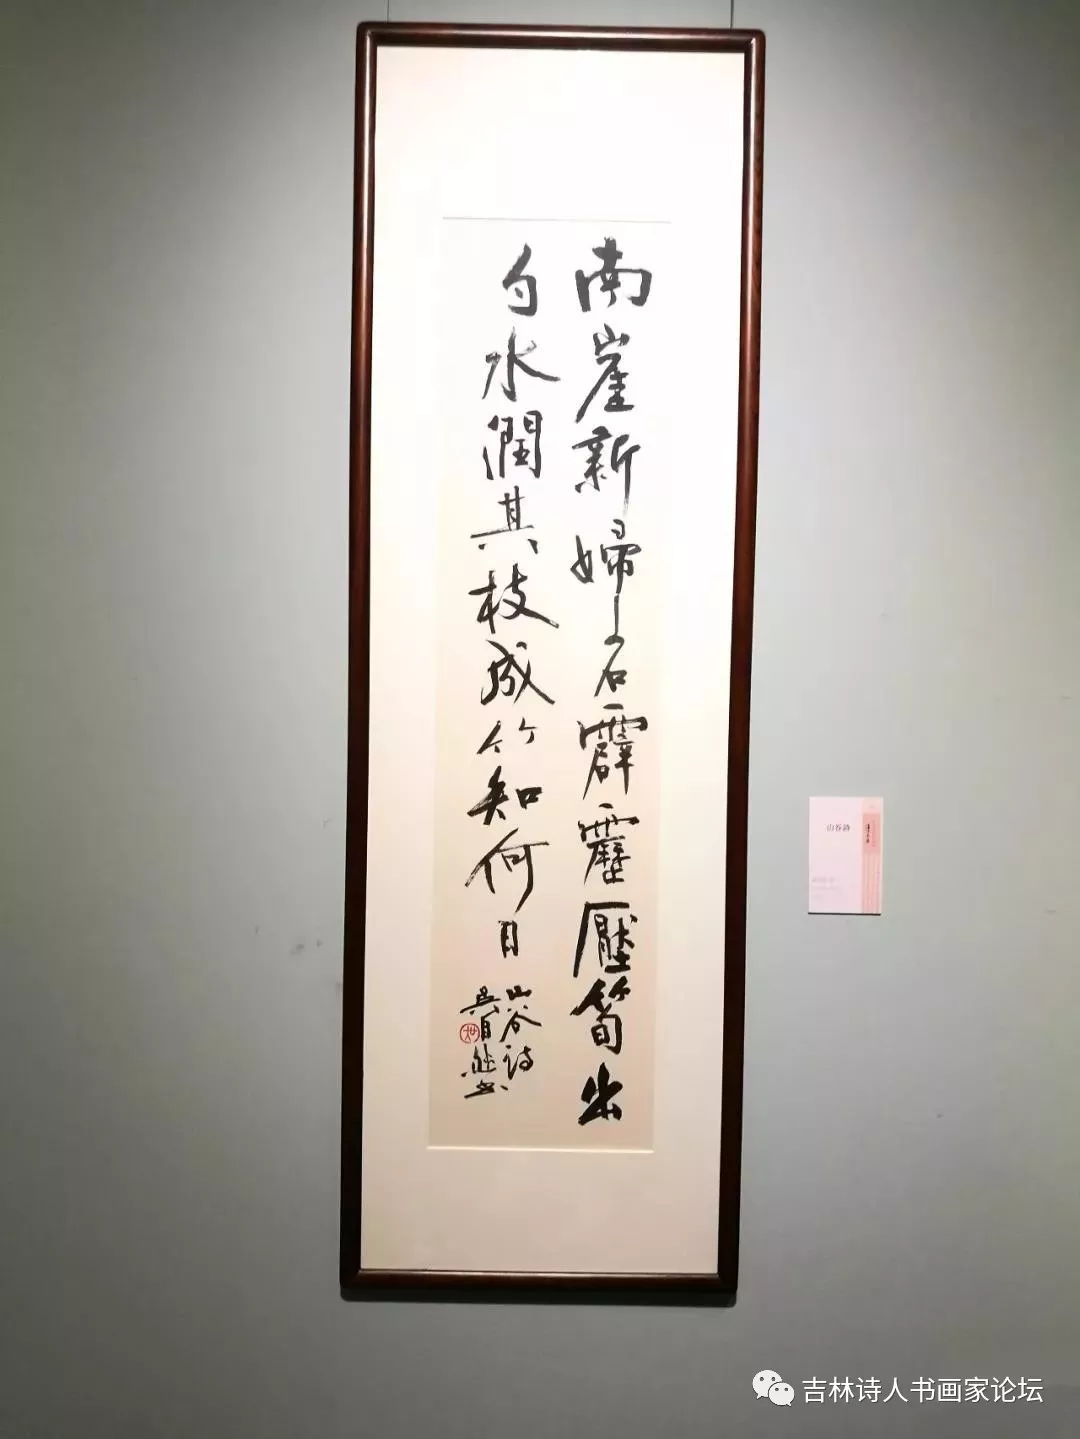 南崖新婦石霹靂壓筍出
勺水潤其枝成竹知何日
山谷詩
山谷詩
吉林诗人书画家论坛